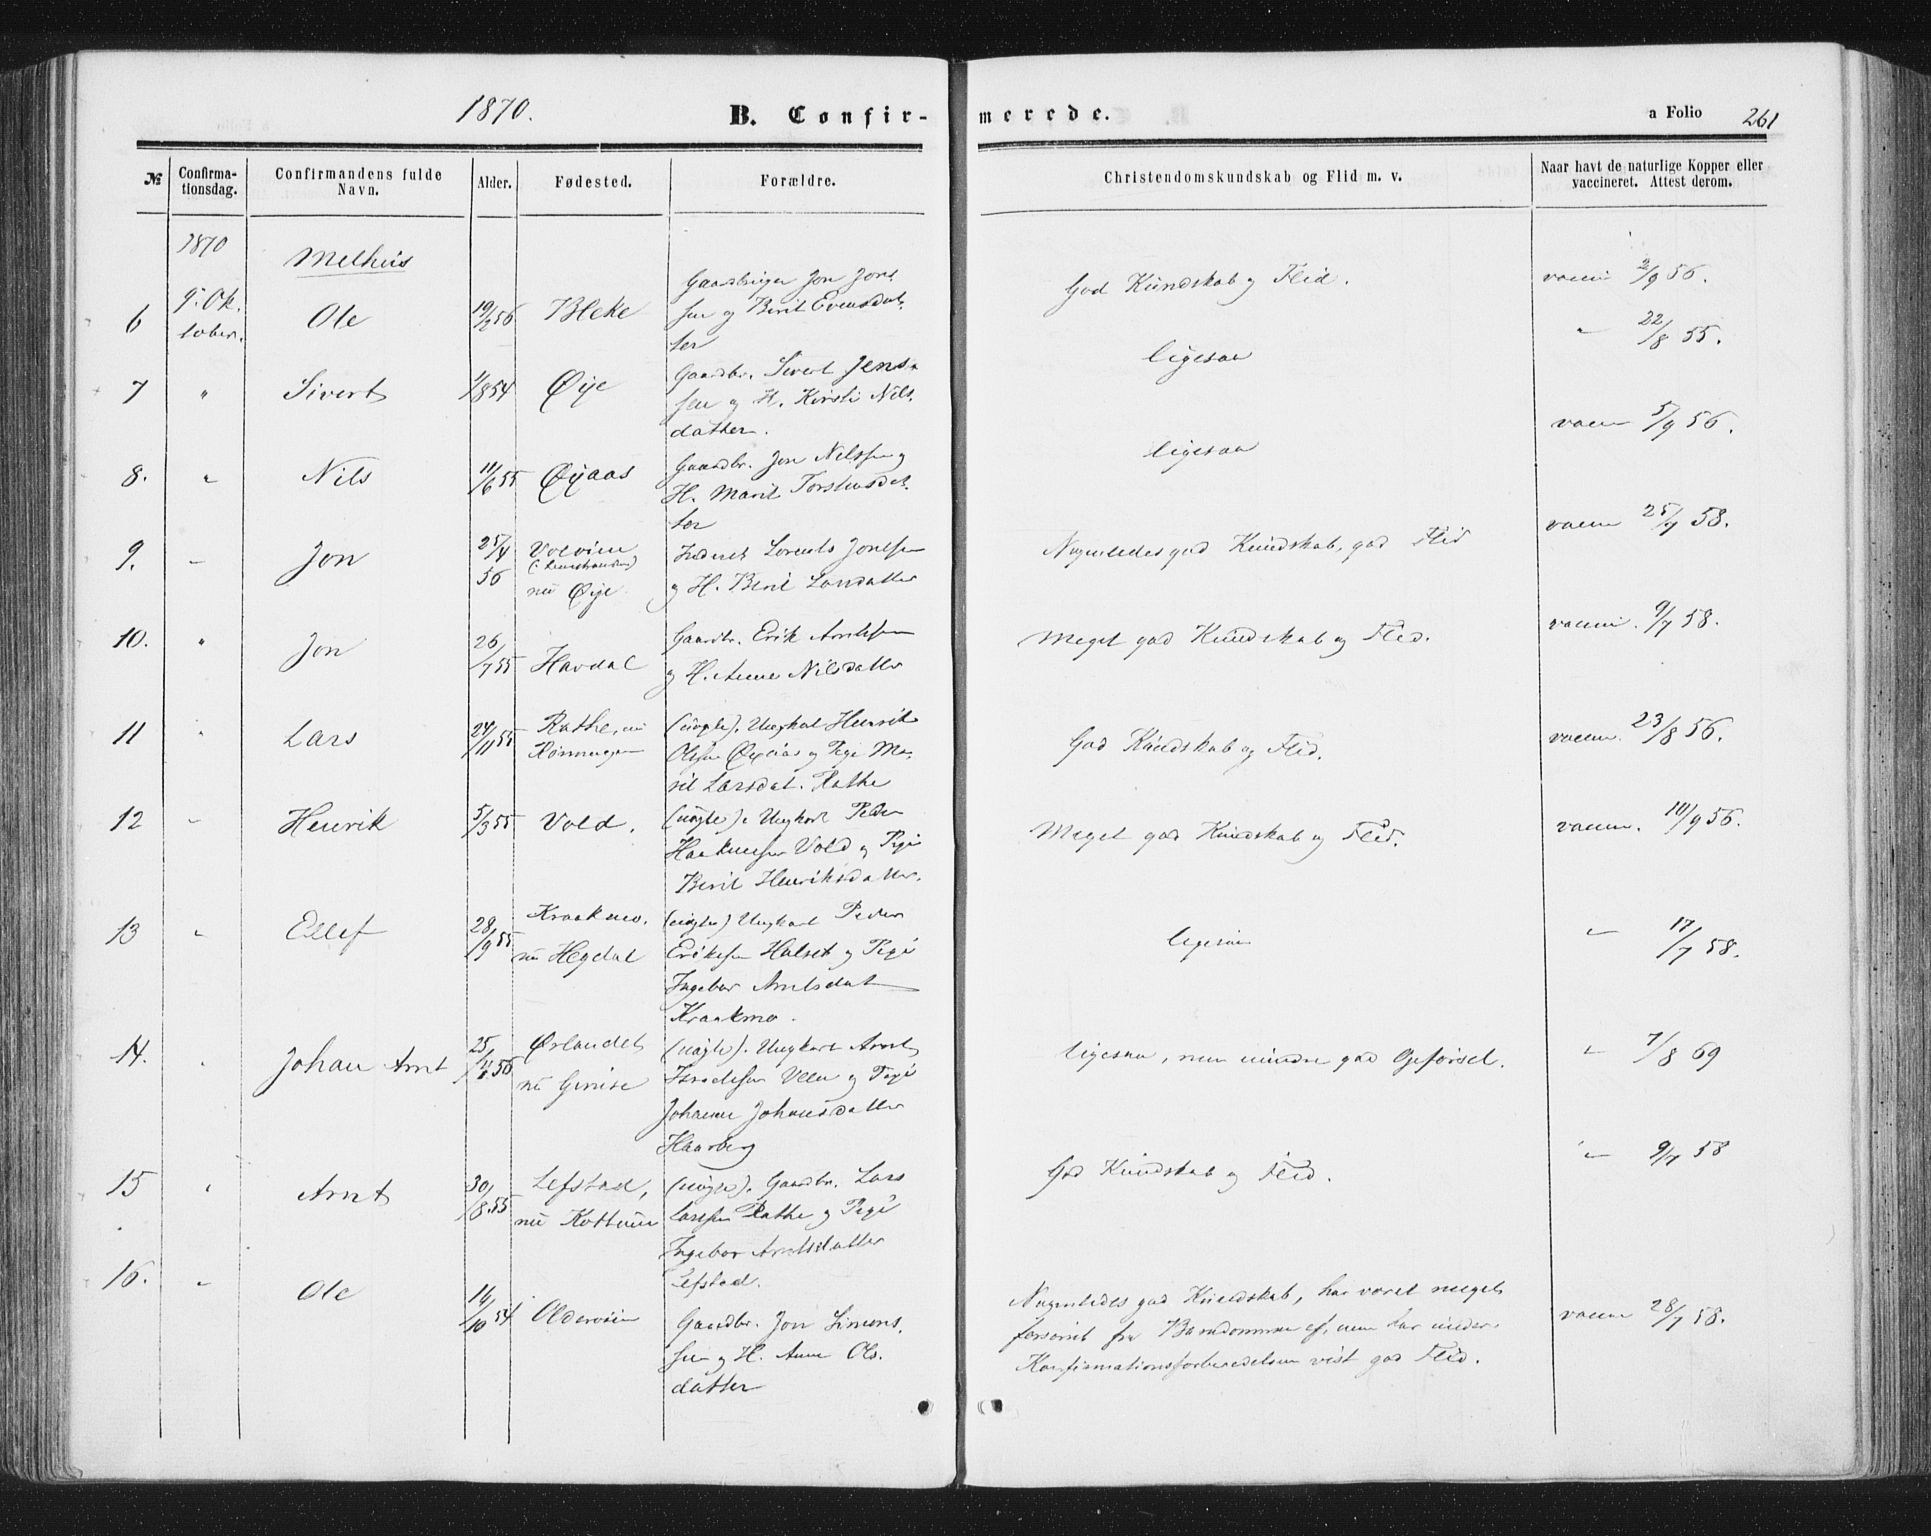 1870. B. Confir- merede. a Folio 261
№ Confirma-tionsdag. Confirmandens fulde Navn. Alder. Fødested. Forældre. Christendomskundskab og Flid m. v. Naar havt de naturlige Kopper eller vaccineret. Attest derom.
1870 Melhus
6 9. Ok- Ole 19/2 56 Bleke Gaardbruger Jon Jons- God Kundskab og Flid. vacci 2/9 56.
tober. sen og Berit Evensdat-
ter
7 " Sivert 1/8 54 Øye Gaardbr. Sivert Jens- ligesaa " 22/8 55.
sen og H. Kirsti Nils-
datter.
8. " Nils 11/6 55 Øyaas Gaardbr. Jon Nilssen og ligesaa vacci 5/9 56.
H. Marit Torstensdat-
ter
9. " Jon 25/4 Lorents Jonssen god Kundskab, god Flid vaccin 25/7 58.
56 nu Øye. og H. Berit Larsdatter
10. " Jon 26/7 55 Havdal Gaardbr. Erik Arntssen Meget god Kundskab og Flid. vaccin. 9/7 58.
og H. Anne Nilsdatter
11 " Lars 24/11 55 Rathe, nu (uægte). Ungkarl Henrik God Kundskab og Flid. vaccin. 23/8 56.
Olsen Øyaas og Pige Ma-
rit Larsdat. Rathe
12 " Henrik 5/3 55 Vold. (uægte). Ungkarl Peder Meget god Kundskab og Flid. vaccin. 10/9 56.
Haakensen Vold og Pige
Berit Henriksdatter.
13 " Ellef 28/9 55 Kraakmo. (uægte) Ungkarl Peder ligesaa " 17/7 58.
nu Hegdal Eriksen Halset og Pige
Ingebor Arntsdat
Kraakmo.
14. " Johan Arnt 25/4 56 Ørlandet (uægte). Ungkarl Arnt ligesaa, men mindre god Opførsel. " 7/8 69
nu Gimse og Pige
Johanne Johansdatter
Haarberg
15 " Arnt 30/8 55 Lefstad, (uægte). Gaardbr. Lars God Kundskab og Flid. " 9/7 58
nu Kottum Larssen Rathe og Pige
Ingebor Arntsdatter
Lefstad.
16. " Ole 14/10 54 Olderøien Gaardbr. Jon Simons- god Kundskab, har været meget vaccin 28/7 58.
sen og H. Anne Ols- forsømt fra Barndommen af, men har under
datter Konfirmationsforberedelsen vist god Flid.